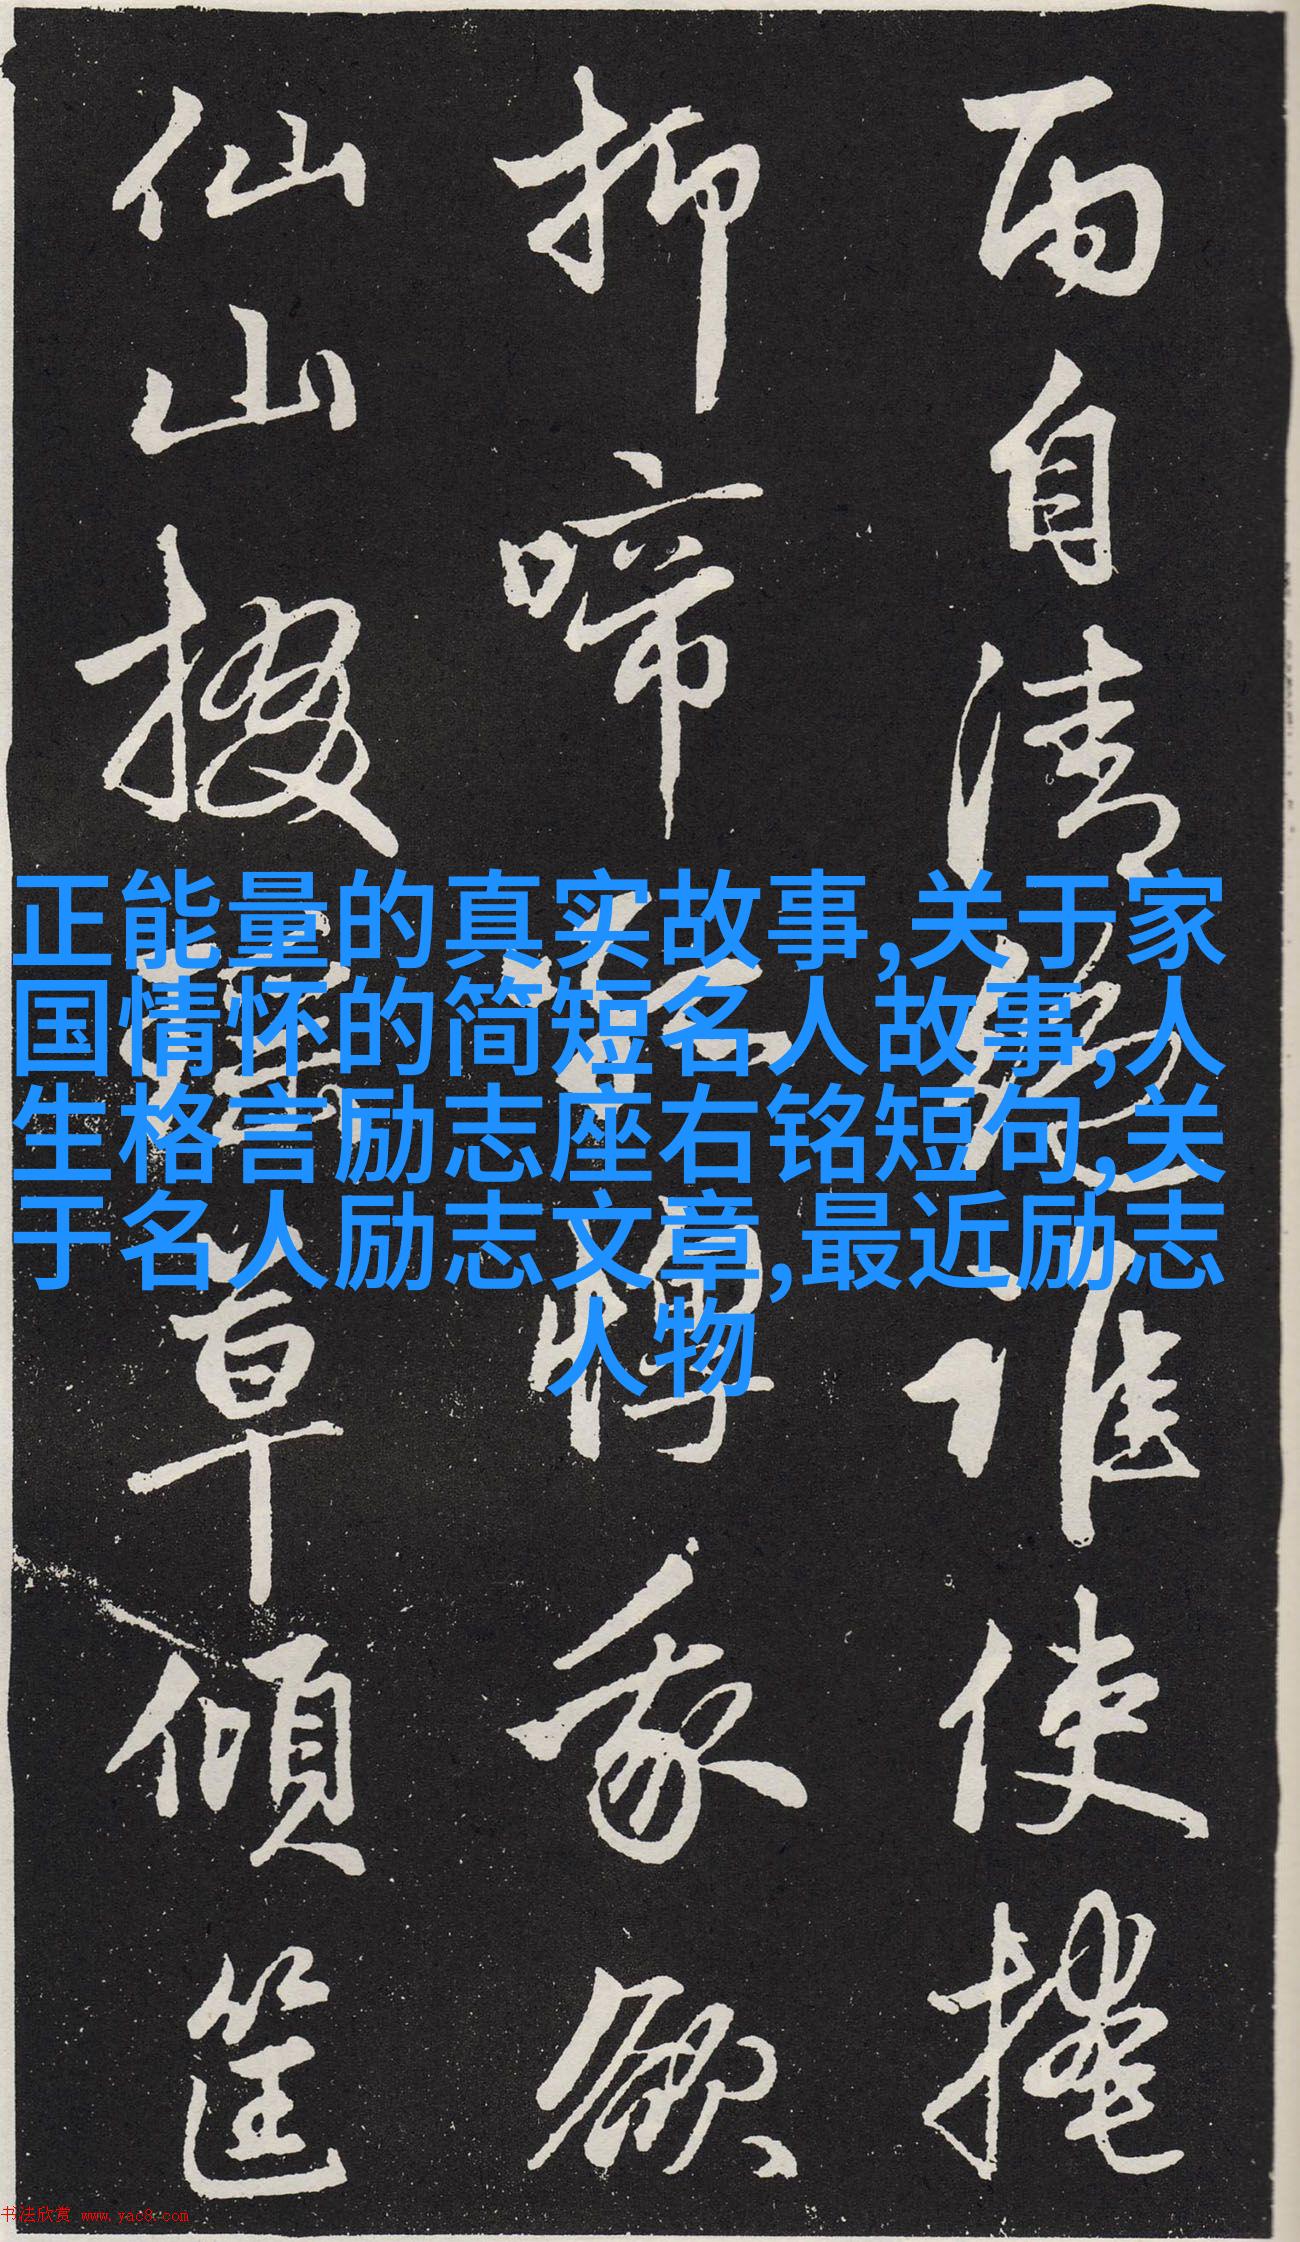 而自清飔谁使掩
抑啼
家欲
仙山掇
草倾筐
正能量的真实故事,关于家
国情怀的简短名人故事,人
生格言励志座右铭短句,关
于名人励志文章,最近励志
人物
书法欣赏 www.yac8.com